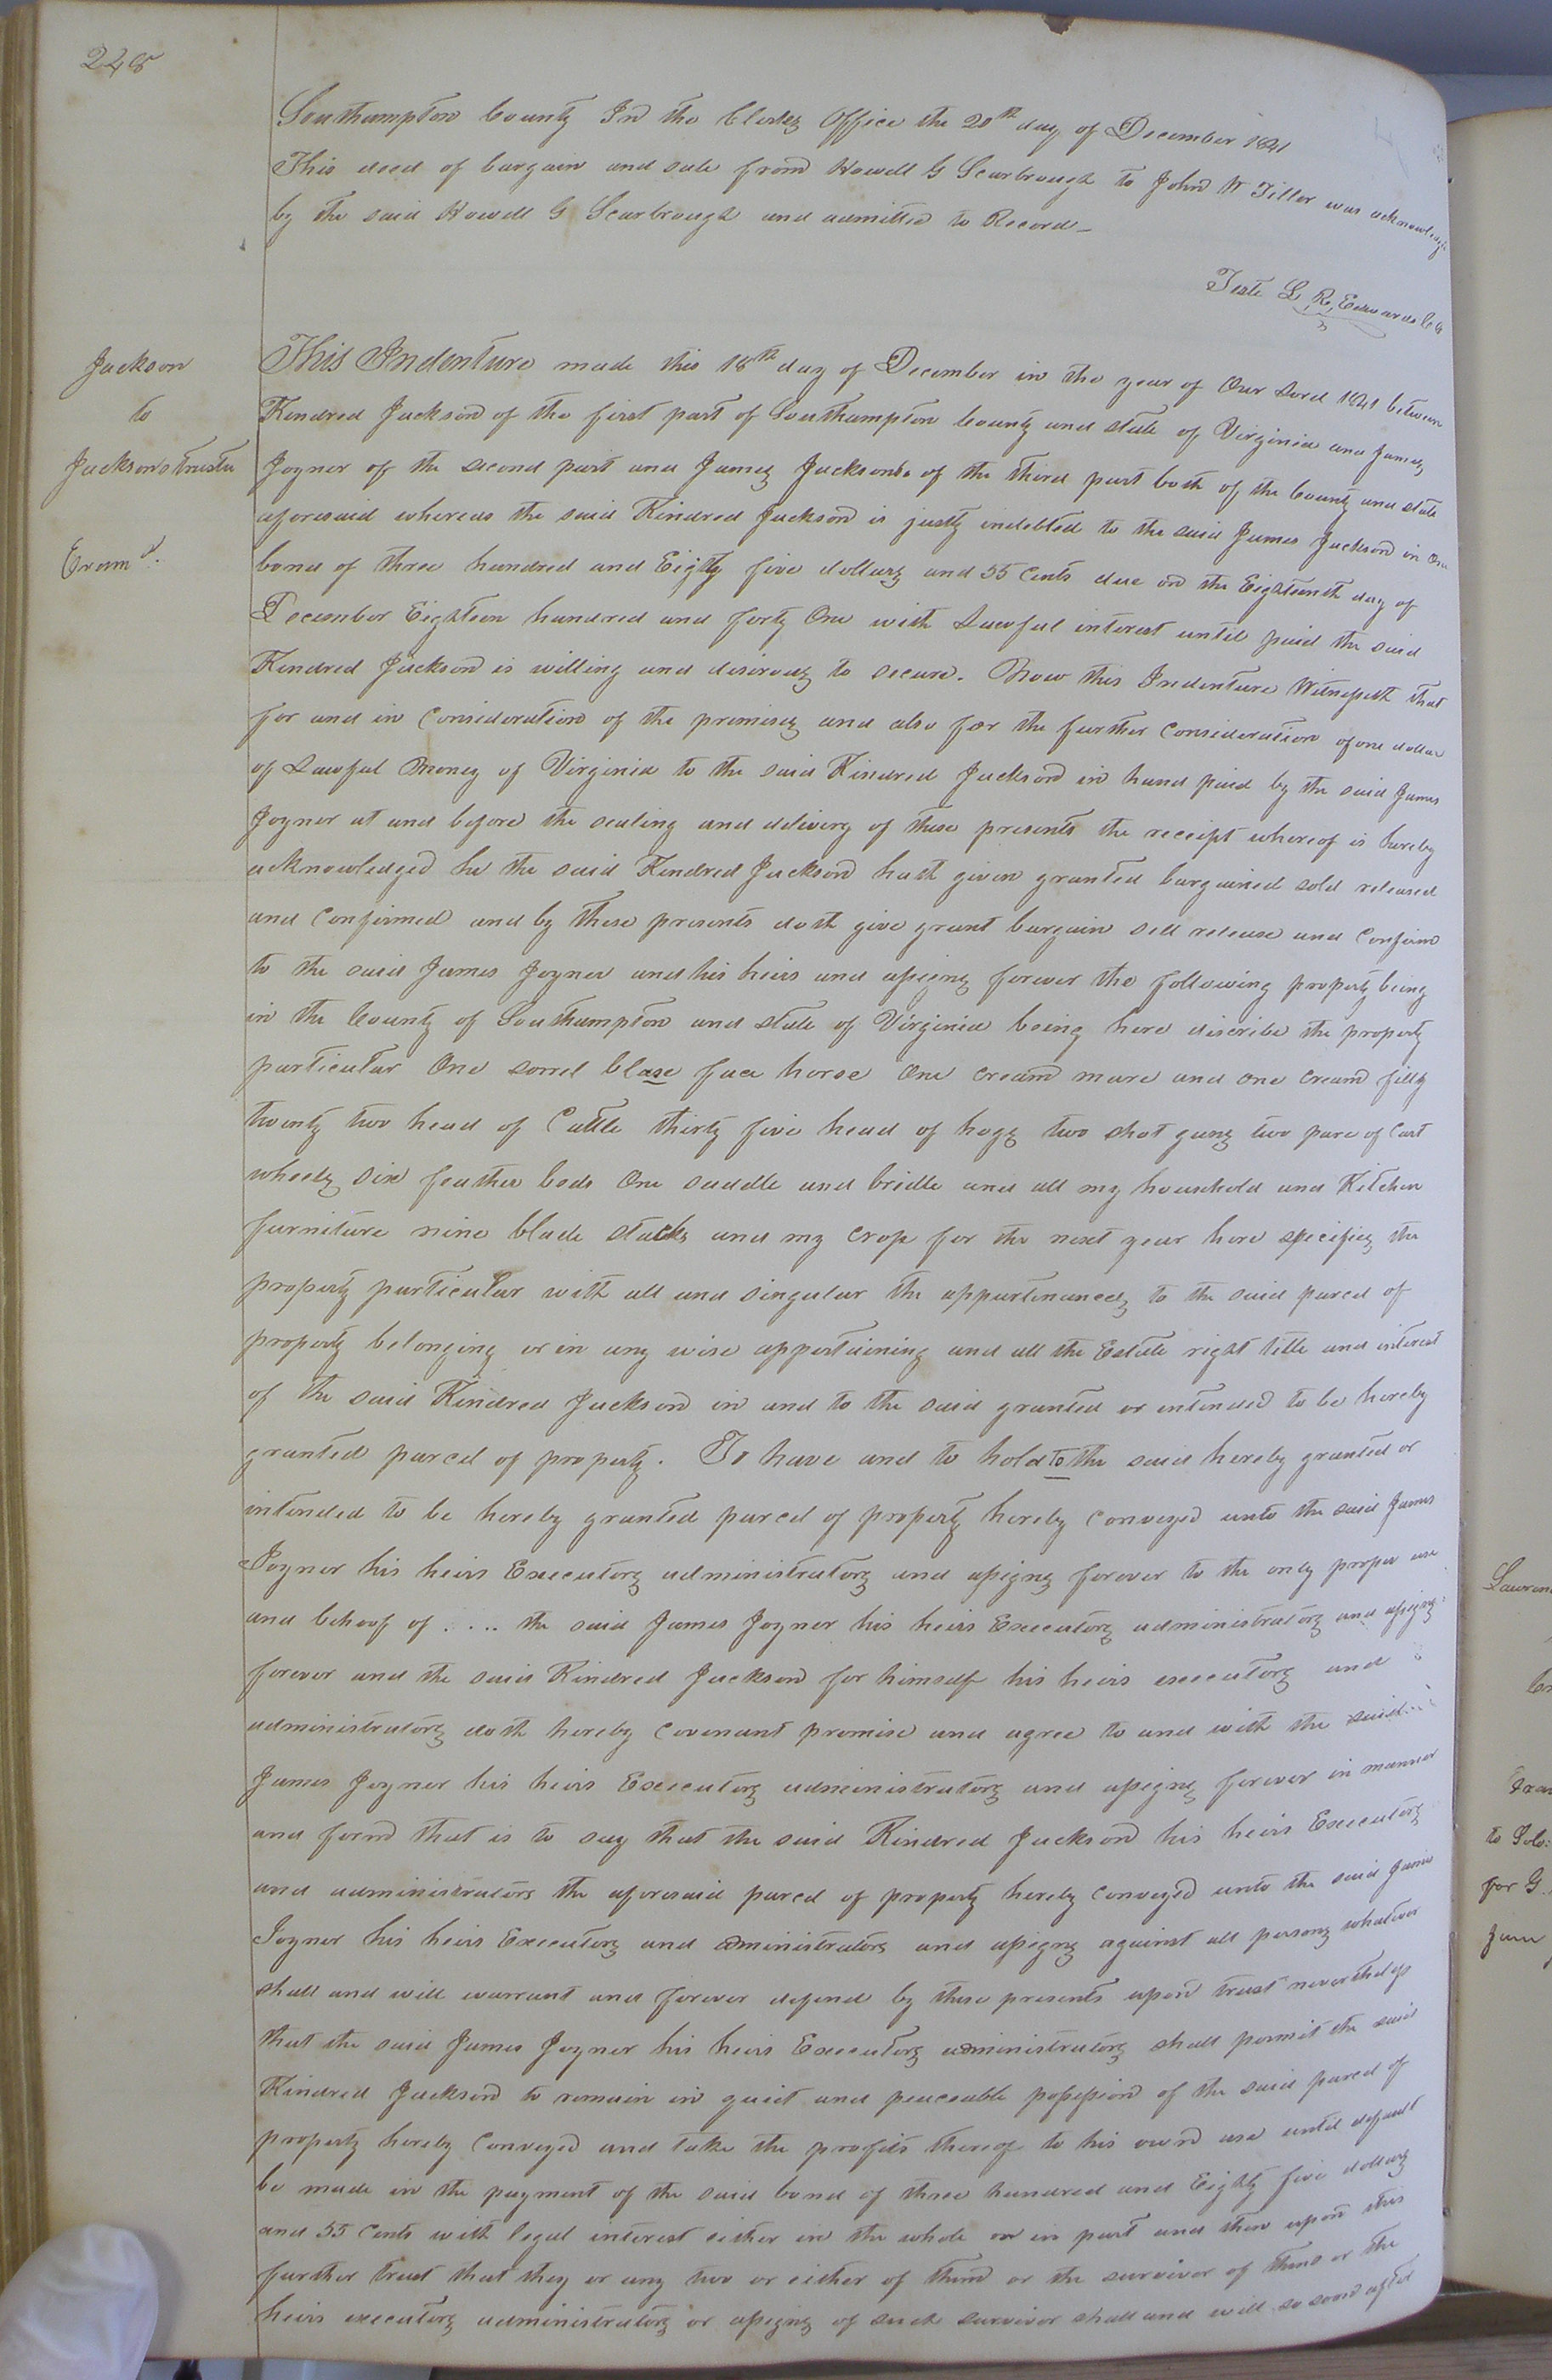 228
Southampton County In the Clerks Office the 20th day of December 1841
This deed of bargain and sale from Howell G Scarbrough to John W Tiller was acknowledge
by the said Howell G Scarbrough and admitted to Record_
Teste L, R, Edwards CC
Jackson
to
Jacksons trustee
Exam d.
This Indenture made this 18th day of December in the year of Our Lord 1841 between
Kindred Jackson of the first part of Southampton County and state of Virginia and James
Joyner of the second part and James Jackson of the third part both of the County and state
aforesaid whereas the said Kindred Jackson is justly indebted to the said James Jackson in One
bond of three hundred and Eighty five dollars and 55 Cents due on the Eighteenth day of
December Eighteen hundred and forty One with Lawful interest until paid the said
Kindred Jackson is willing and desirous to secure. Now this Indenture Witnesseth that
for and in Consideration of the premises and also for the further Consideration of one dollar
of Lawful Money of Virginia to the said Kindred Jackson in hand paid by the said James
Joyner at and before the sealing and delivery of these presents the receipt whereof is hereby
acknowledged he the said Kindred Jackson hath given granted bargained sold released
and Confirmed and by these presents doth give grant bargain sell release and Confirm
to the said James Joyner and his heirs and assigns forever the following property being
in the County of Southampton and state of Virginia being here discribe the property
particular One sorrel blase face horse One cream mare and one cream filly
twenty two head of Cattle thirty five head of hogs two shot guns two pare of Cart
wheels six feather beds One saddle and bridle and all my household and Kitchen
furniture nine blade stacks and my Crop for the next year here specifies the
property particular with all and singular the appurtenances to the said parcel of
property belonging or in any wise appertaining and all the Estate right title and interest
of the said Kindred Jackson in and to the said granted or intended to be hereby
granted parcel of property. To have and to hold to the said hereby granted or
intended to be hereby granted parcel of property hereby Conveyed unto the said James
Joyner his heirs Executors administrators and assigns forever to the only proper use
and behoof of .... the said James Joyner his heirs Executors administrators and assigns
forever and the said Kindred Jackson for himself his heirs executors and
administrators doth hereby Covenant promise and agree to and with the said
James Joyner his heirs Executors administrators and assigns forever in manner
and form that is to say that the said Kindred Jackson his heirs Executors
and administrators the aforesaid parcel of property hereby Conveyed unto the said James
Joyner his heirs Executors and administrators and assigns against all persons whatever
shall and will warrant and forever defend by these presents upon trust nevertheless
that the said James Joyner his heirs Executors administrators shall permit the said
Kindred Jackson to remain in quiet and peaceable possession of the said parcel of
property hereby Conveyed and take the profits thereof to his own use until default
be made in the payment of the said bond of three hundred and Eighty five dollars
and 55 Cents with legal interest either in the whole or in part and then upon this
further trust that they or any two or either of them or the survivor of them or the
heirs executors administrators or assigns of such survivor shall and will so soon after
to Solo:
for G.